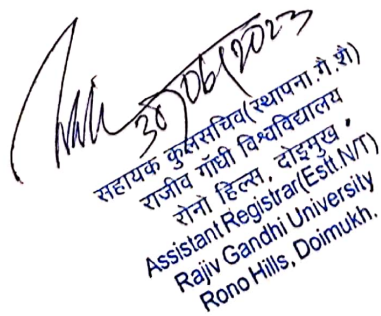 30/06/2023
सहायक कुलसचिव(स्थापना.गै.शै)
राजीव गाँधी विश्वविद्यालय
रोनो हिल्स, दोइमुख.
Assistant Registrar(Estt.N/T)
Rajiv Gandhi University
Rono Hills, Doimukh.